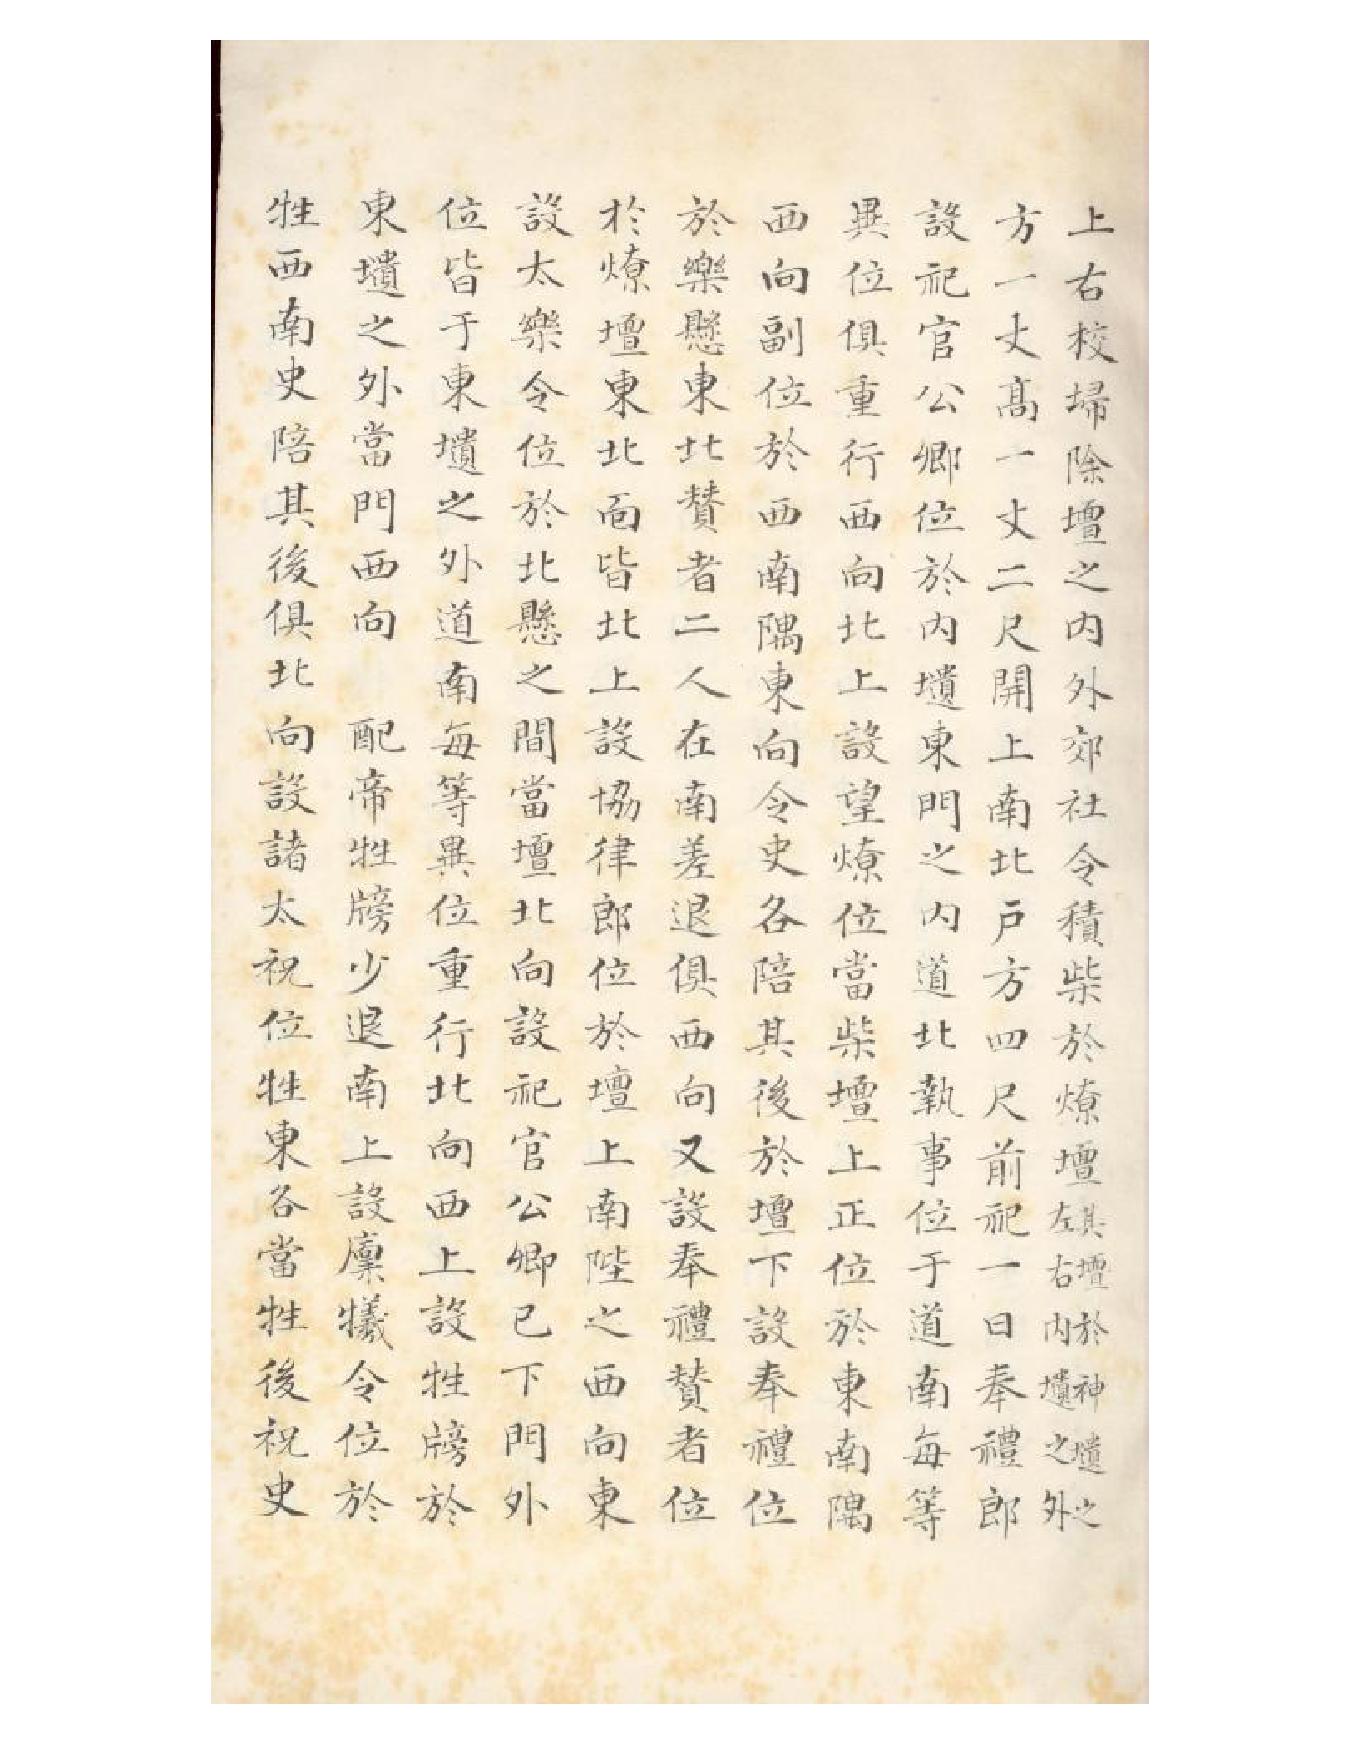 上右校埽除壇之内外郊社令積柴於燎壇其壇於神壝之左右内壝之外
方一丈髙一丈二尺開上南北戸方四尺前祀一日奉禮郎
設祀官公卿位於内壝東門之内道北執事位于道南每等
異位俱重行西向北上設望燎位當柴壇上正位於東南隅
西向副位於西南隅東向令史各陪其後於壇下設奉禮位
於樂懸東北賛者二人在南差退俱西向又設奉禮賛者位
於燎壇東北面皆北上設協律郎位於壇上南陛之西向東
設太樂令位於北懸之間當壇北向設祀官公卿已下門外
位皆于東壝之外道南每等異位重行北向西上設牲牓於
東壝之外當門西向　配帝牲牓少退南上設廩犧令位於
牲西南史陪其後俱北向設諸太祝位牲東各當牲後祝史